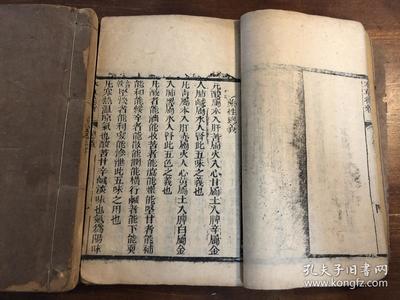 藥性總義
凡酸屬木入肝苦屬火入心甘屬土入脾辛屬金
入肺鹹屬水入腎此五味之義也
凡青屬木入肝赤屬火入心黃屬土入脾白屬金
入肺黑屬水入腎此五色之義也
凡酸者能濇能收苦者能瀉能燥能堅甘者能補
能和能緩辛者能散能潤能橫行鹹者能下能耎
堅淡者能利竅能滲泄此五味之用也
凡寒熱溫涼氣也酸苦甘辛鹹淡味也氣爲陽味
孔夫子旧书网